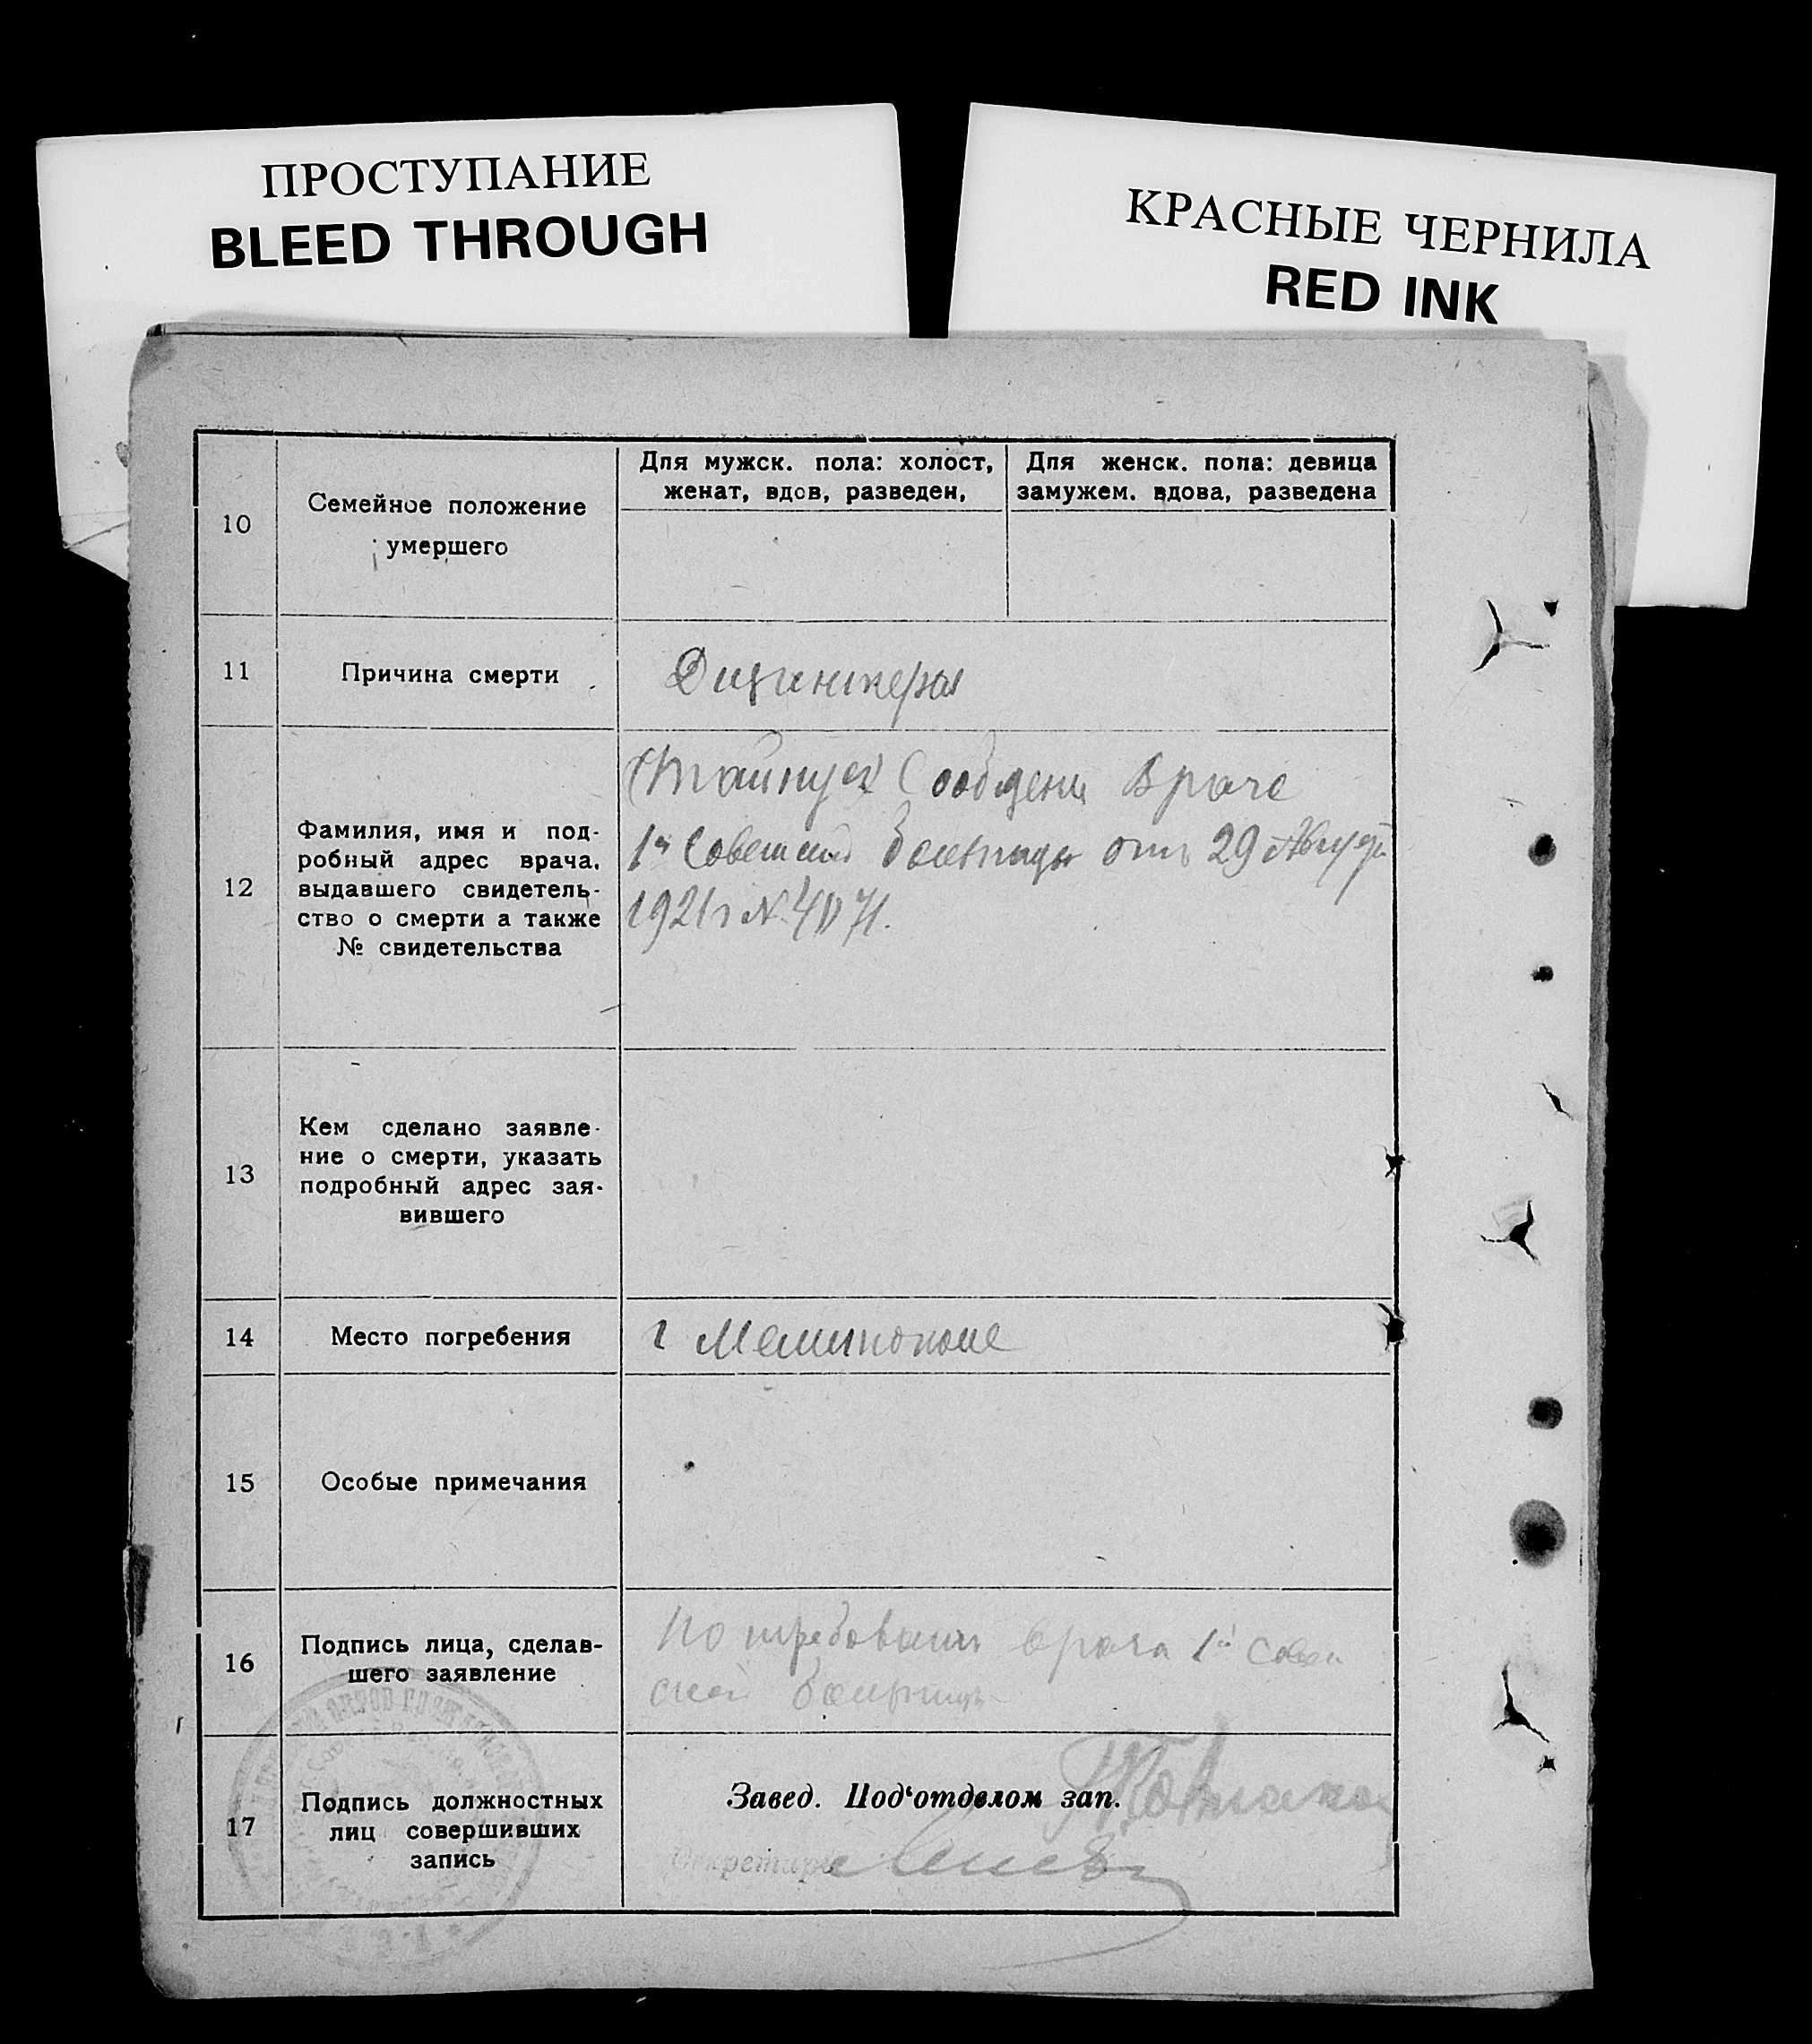 ПРОСТУПАНИЕ
BLEED THROUGH
КРАСНЫЕ ЧЕРНИЛА
RED INK
10
Семейное положение
умершего
Для мужск. пола: холост,
женат, вдов, разведен,
Для женск. пола: девица
замужем. вдова, разведена
11
Причина смерти
12
Фамилия, имя и под-
робный адрес врача,
выдавшего свидетель-
ство о смерти а также
№ свидетельства
врача
1й Советской больницы от 29 Августа
1921 г №
13
Кем сделано заявле-
ние о смерти, указать
подробный адрес зая-
вившего
14
Место погребения
г Мелитополе
15
Особые примечания
16
Подпись лица, сделав-
шего заявление
По требованию врача 1й Совет
ской больницы
17
Подпись должностных
лиц совершивших
запись
Завед. Под'отделом зап.
Секретарь